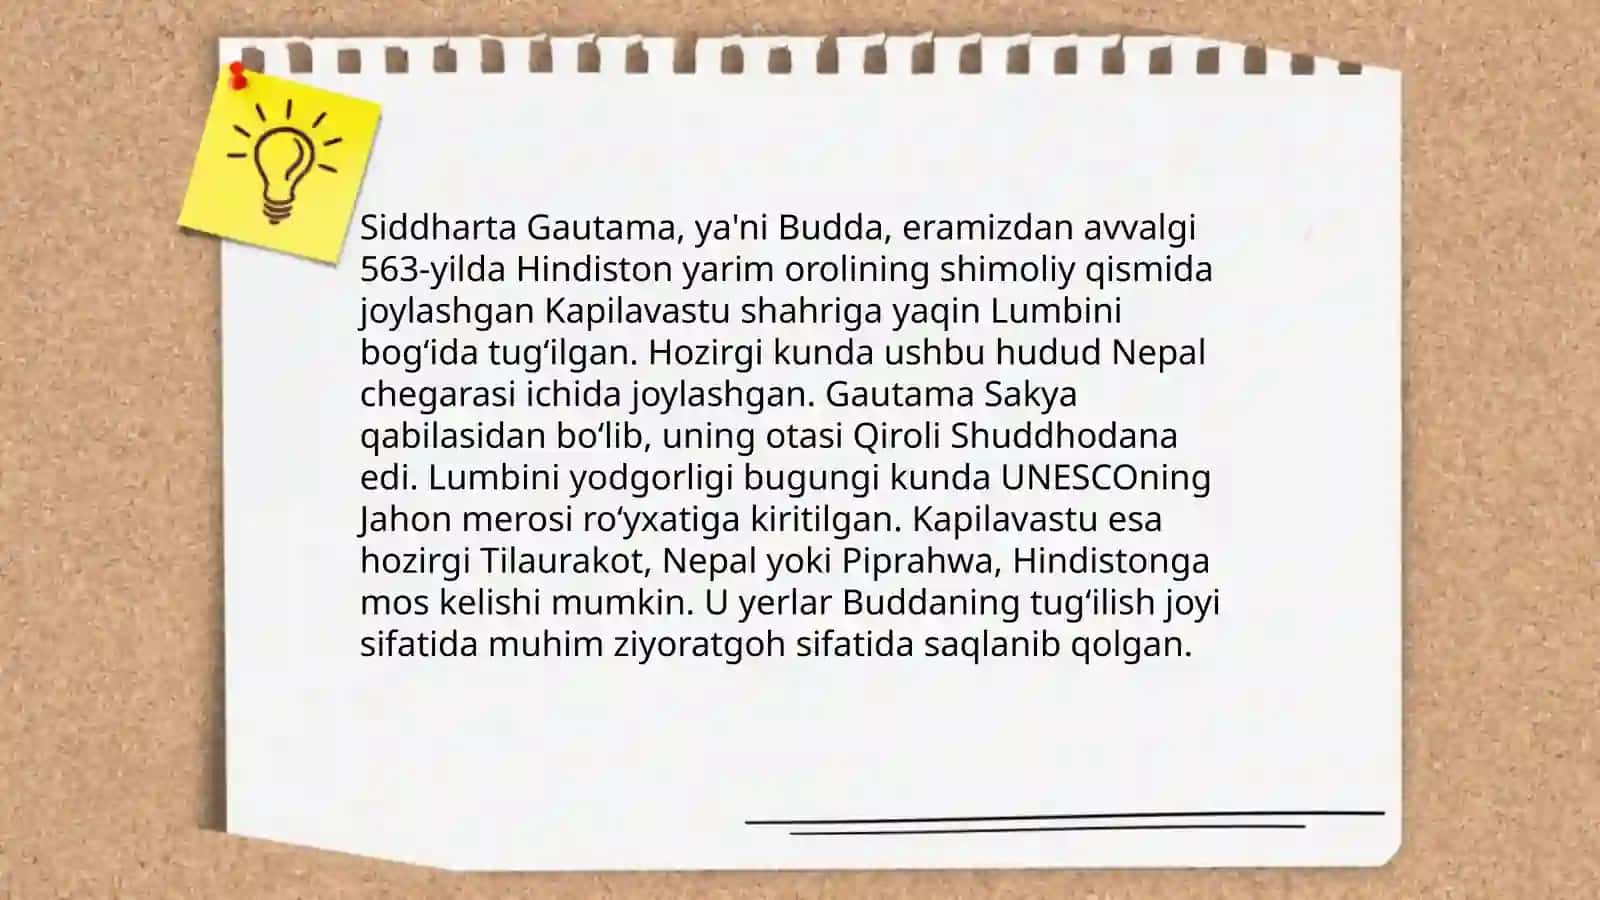 Siddharta Gautama, ya'ni Budda, eramizdan avvalgi
563-yilda Hindiston yarim orolining shimoliy qismida
joylashgan Kapilavastu shahriga yaqin Lumbini
bog‘ida tug‘ilgan. Hozirgi kunda ushbu hudud Nepal
chegarasi ichida joylashgan. Gautama Sakya
qabilasidan bo‘lib, uning otasi Qiroli Shuddhodana
edi. Lumbini yodgorligi bugungi kunda UNESCOning
Jahon merosi ro‘yxatiga kiritilgan. Kapilavastu esa
hozirgi Tilaurakot, Nepal yoki Piprahwa, Hindistonga
mos kelishi mumkin. U yerlar Buddaning tug‘ilish joyi
sifatida muhim ziyoratgoh sifatida saqlanib qolgan.